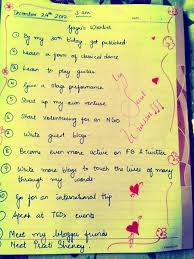 December 24th 2012 3 am
Yayu's Wishlist
1 By my 20th bday, get published
2 Learn a form of classical dance
3 Learn to play guitar
4 Give a stage performance
5 Start up my own venture
6 Start volunteering for an NGO
7 Write guest blogs
8 Become even more active on FB & twitter
9 Write more blogs to touch the lives of many
through my words
10 Go for an international trip
11 Speak at TEDx events
Meet my blogger friends
Meet
by